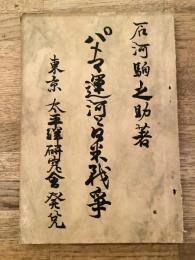 石河駒之助著
パナマ運河と日米戦争
東京 太平洋研究会発兌